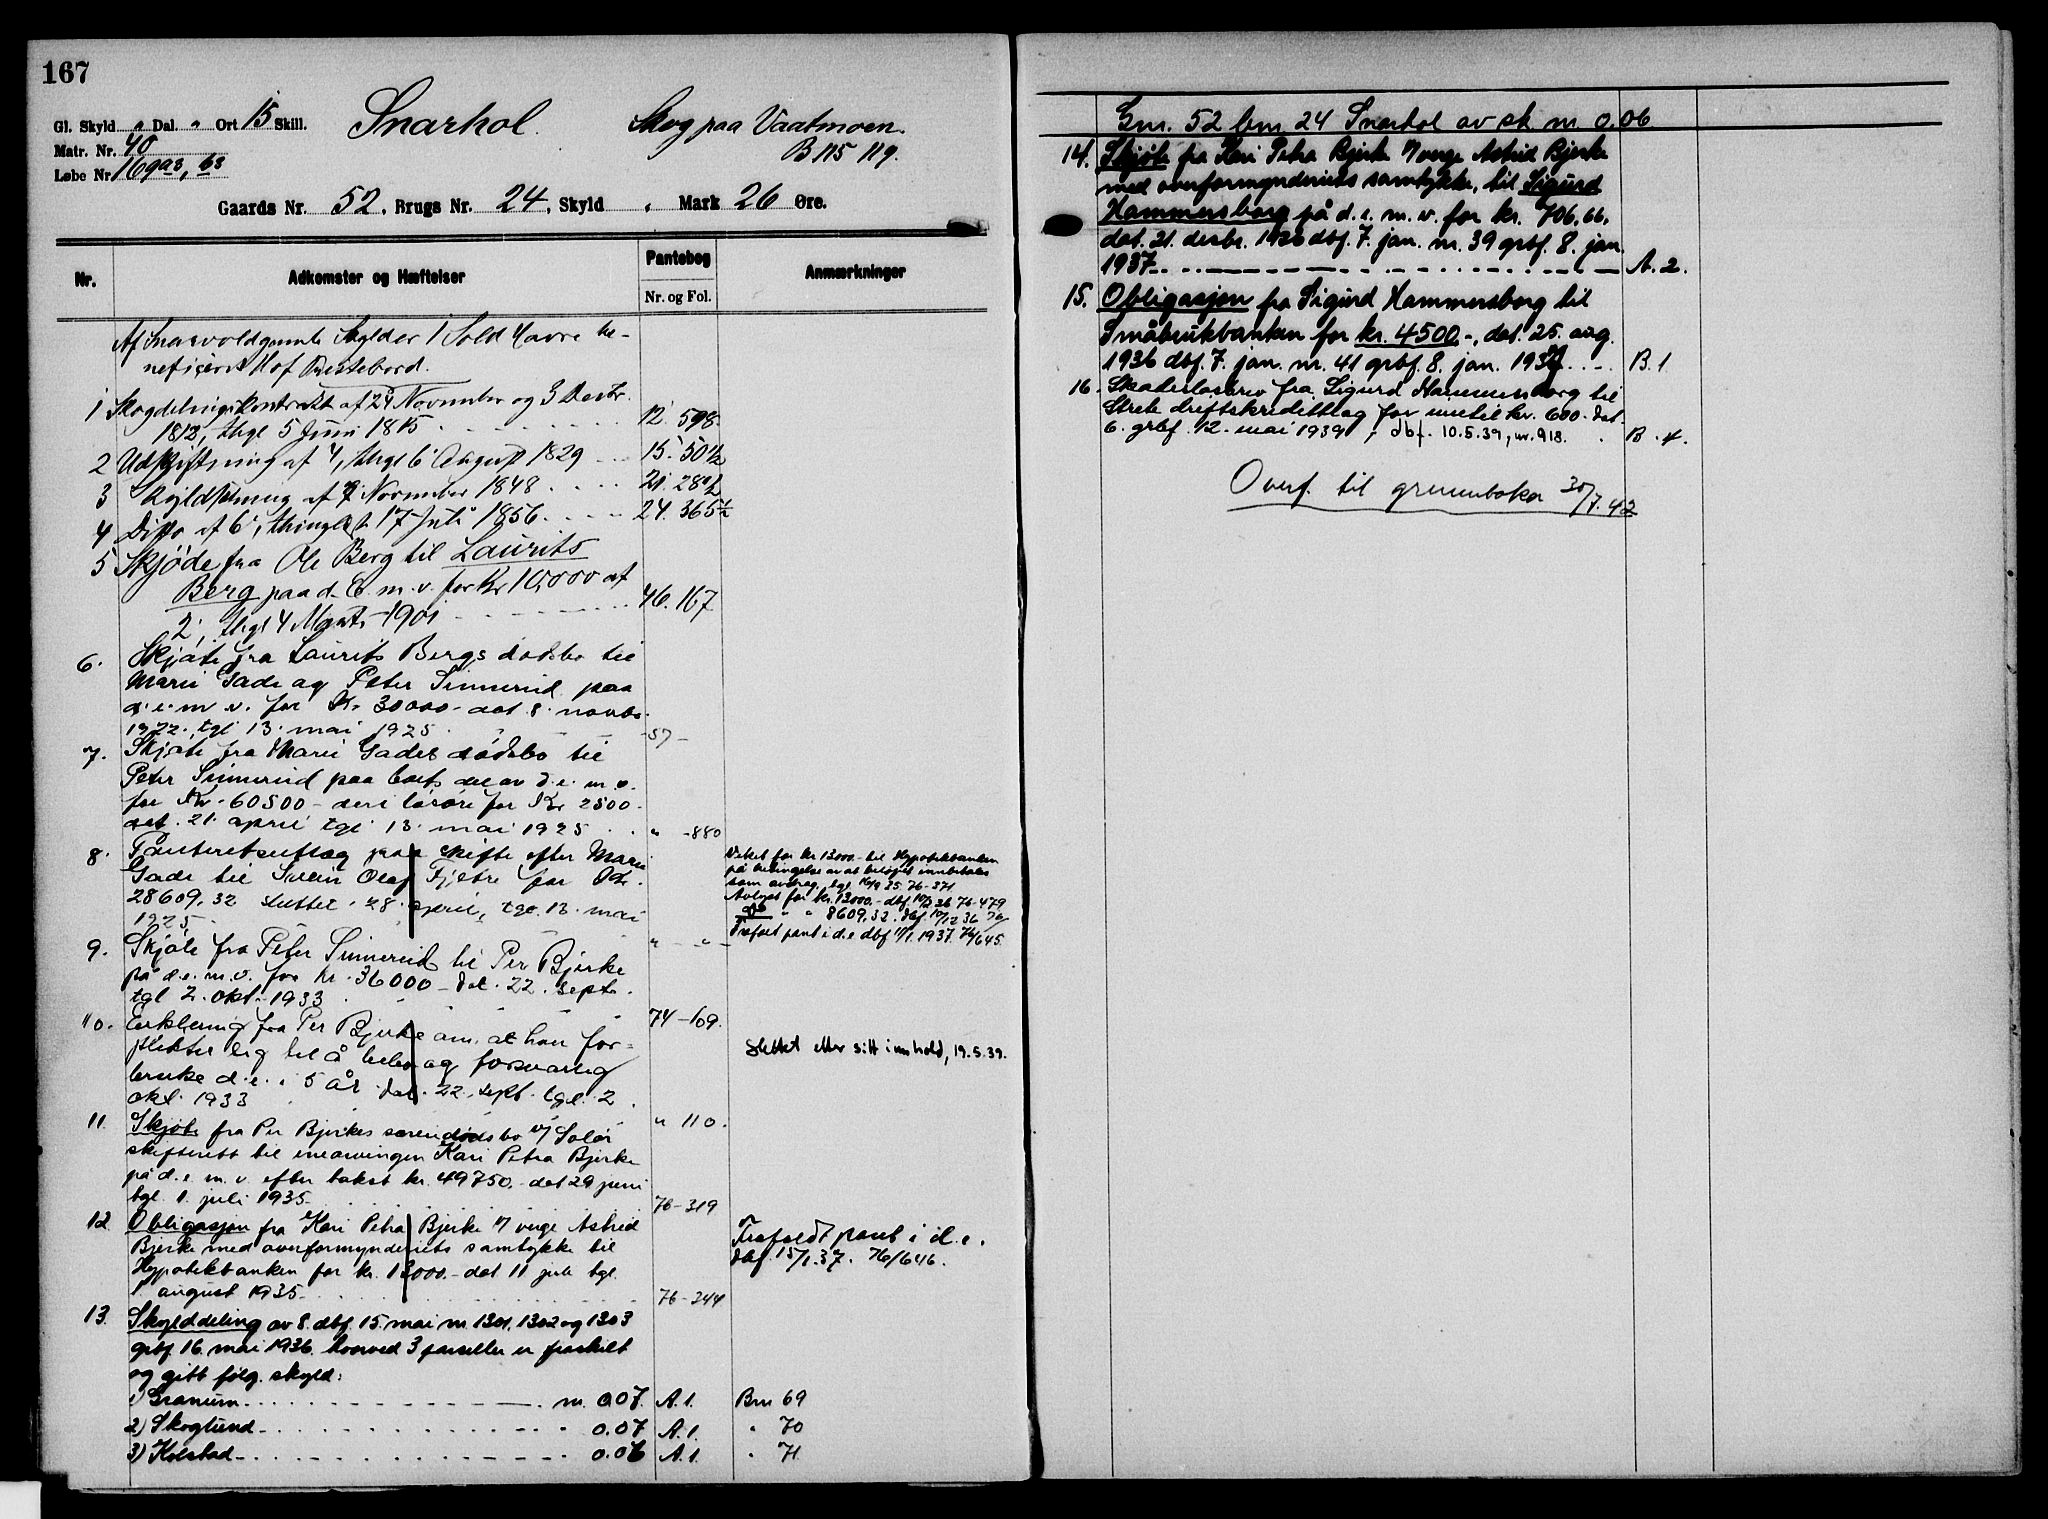 167
Gl. Skyld „ Dal. „ Ort 15 Skill.
Snarhol.
Skog paa Vaatmoen.
B 115 119.
Matr. Nr. 40
Løbe Nr. 169a8, 63
Gaards Nr. 52, Brugs Nr. 24, Skyld „ Mark 26 Øre.
Nr.
Adkomster og Hæftelser
Pantebog
Nr. og Fol.
Anmærkninger
Af Snarvoldgamle Skylder 1 Sold Havre be-
neficeret Hof Prestebord.
1 Skogdelingskontrakt af 24 November og 3 Decbr.
1812, thgl 5 Juni 1815 12. 598.
2 Udskiftning af 4, thgl 6 August 1829 15. 501½
3 Skyldsetning af 7 November 1848 21. 280½
4 Ditto af 6, thinglæst 17 Juli 1856 24. 365½
5 Skjøde fra Ole Berg til Laurits
Berg paa d. E. m. v. for Kr 10,000 af
2, thgl 4 Marts 1901 46. 167
6. Skjøte fra Laurits Bergs dødsbo til
Marie Gade og Peter Sinnerud paa
d. e. m v. for Kr 30000 - dat 8. novbr.
1922, tgl 13. mai 1925. -57-
7. Skjøte fra Marie Gades dødsbo til
Peter Sinnerud paa halvdel av d. e. m. v.
for Kr. 60500 - deri løsøre for Kr 2500.
dat. 21. april tgl 13. mai 1925 „ -880
8. Panteretsutlæg paa skifte efter Marie
Gade til Svein Olaf Fjeltre for Kr.
28609,32 sluttet 28. april, tgl. 13. mai
1925. „ - „ -
Veket for kr 13000.- til Hypotekbanken
på betingelse av at beløpet innbetales
som avdrag, tgl 16/8 35 76-371
Avlyst for kr. 13000.- dbf 10/3 36 76-479
do „ „ 8609,32. dbf. 10/12 36 76/
Frafalt pant i d.e dbf 11/1. 1937. 76/645.
9. Skjøte fra Peter Sinnerud til Per Bjerke
på d. e. m. v. for kr. 36000 - dat. 22. septr.
tgl 2. okt. 1933 74-109.
10. Erklæring fra Per Bjerke om at han for-
plikter sig til å bebo og forsvarlig
bruke d. e. i 5 år. dat. 22. sept. tgl. 2.
okt. 1933 „ 110.
Slettet etter sitt innhold, 19.5.39.
11. Skjøte fra Per Bjerkes særeiedødsbo v/ Solør
skifterett til enearvingen Kari Petra Bjerke
på d. e. m. v. efter takst kr. 49750.- dat 29 juni
tgl. 1. juli 1935. 76-319
12. Obligasjon fra Kari Petra Bjerke v/ verge Astrid
Bjerke med overformynderiets samtykke til
Hypotekbanken for kr. 13000.- dat 11 juli tgl.
1. august 1935. 76-344
Frafaldt pant i d. e.
dbf. 15/1.37. 76/646.
13. Skylddeling av 8. dbf. 15. mai nr. 1301, 1302 og 1303
grbf. 16. mai 1936. hvorved 3 parseller er fraskilt
og gitt følg. skyld:
1) Granum m. 0.07. A. 1. Brn 69
2) Skoglund „ 0.07 A. 1. „ 70
3) Kolstad „ 0.06 A. 1. „ 71
Gnr. 52 bnr. 24 Snarhol av sk. m. 0.06
14. Skjøte fra Kari Petra Bjerke v/ verge Astrid Bjerke
med overformynderiets samtykke, til Sigurd
Hammersborg på d. e. m. v. for kr. 706,66,
dat. 21. desbr. 1936 dbf. 7. jan. nr. 39 grbf. 8. jan.
1937. A. 2.
15. Obligasjon fra Sigurd Hammersborg til
Småbrukbanken for kr. 4500.-, dat. 25. aug.
1936 dbf. 7. jan. nr. 41 grbf. 8. jan. 1937. B. 1
16. Skadesløsbrev fra Sigurd Hammersborg til
Strete driftskredittlag for inntil kr. 600.- dat.
6. grbf. 12. mai 1939, dbf. 10.5.39, nr. 918. B. 4.
Overf. til grunnboken 30/7.42